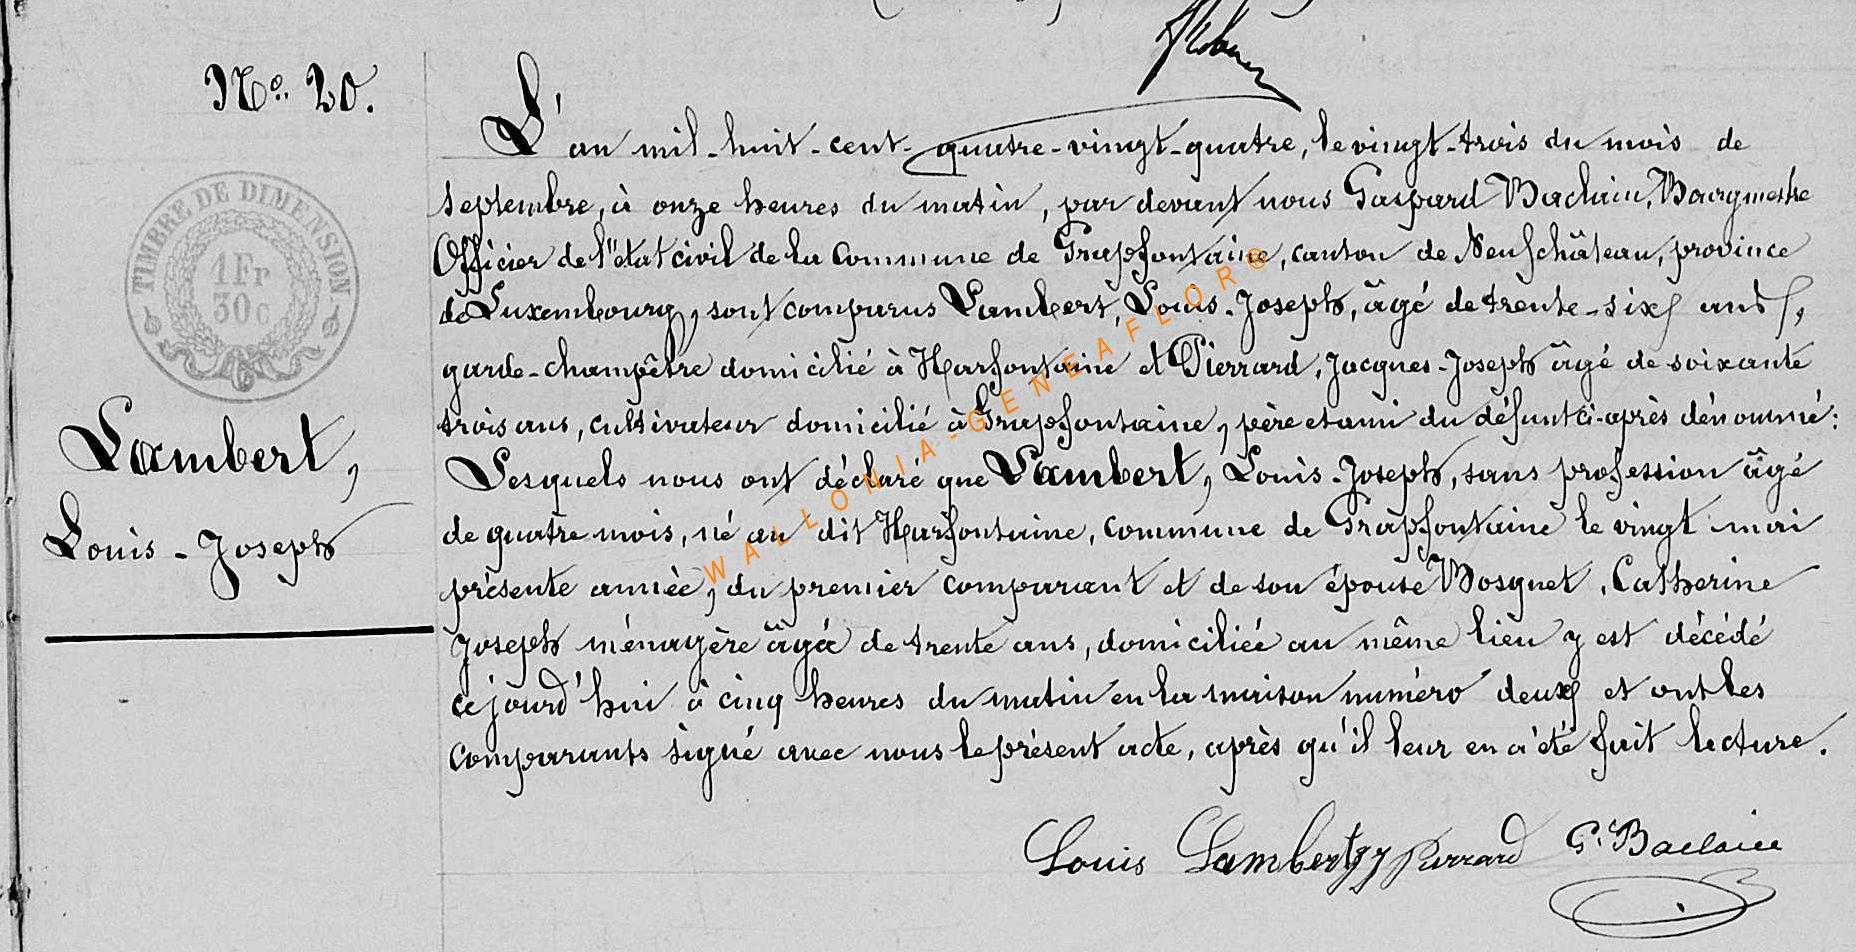 No. 20.
L'an mil-huit-cent-quatre-vingt-quatre, le vingt-trois du mois de
septembre, à onze heures du matin, par devant nous Gaspard Baclain, Bourgmestre
Officier de l'état civil de la Commune de Grapfontaine, canton de Neufchâteau, province
de Luxembourg, sont comparus Lambert, Louis-Joseph, âgé de trente-six ans,
TIMBRE DE DIMENSION
1Fr
30c
garde-champêtre domicilié à Harfontaine et Pierrard, Jacques-Joseph âgé de soixante
trois ans, cultivateur domicilié à Grapfontaine, père et ami du défunt ci-après dénommé:
Lambert,
Louis-Joseph
Lesquels nous ont déclaré que Lambert, Louis-Joseph, sans profession âgé
de quatre mois, né au dit Harfontaine, commune de Grapfontaine le vingt mai
présente année, du premier comparant et de son épouse Bosquet, Catherine
Joseph ménagère âgée de trente ans, domiciliée au même lieu y est décédé
ce jourd'hui à cinq heures du matin en la maison numéro deux et ont les
comparants signé avec nous le présent acte, après qu'il leur en a été fait lecture.
Louis Lambert JJ Pierrard G. Baclain
WALLONIA-GENEAFLOR®